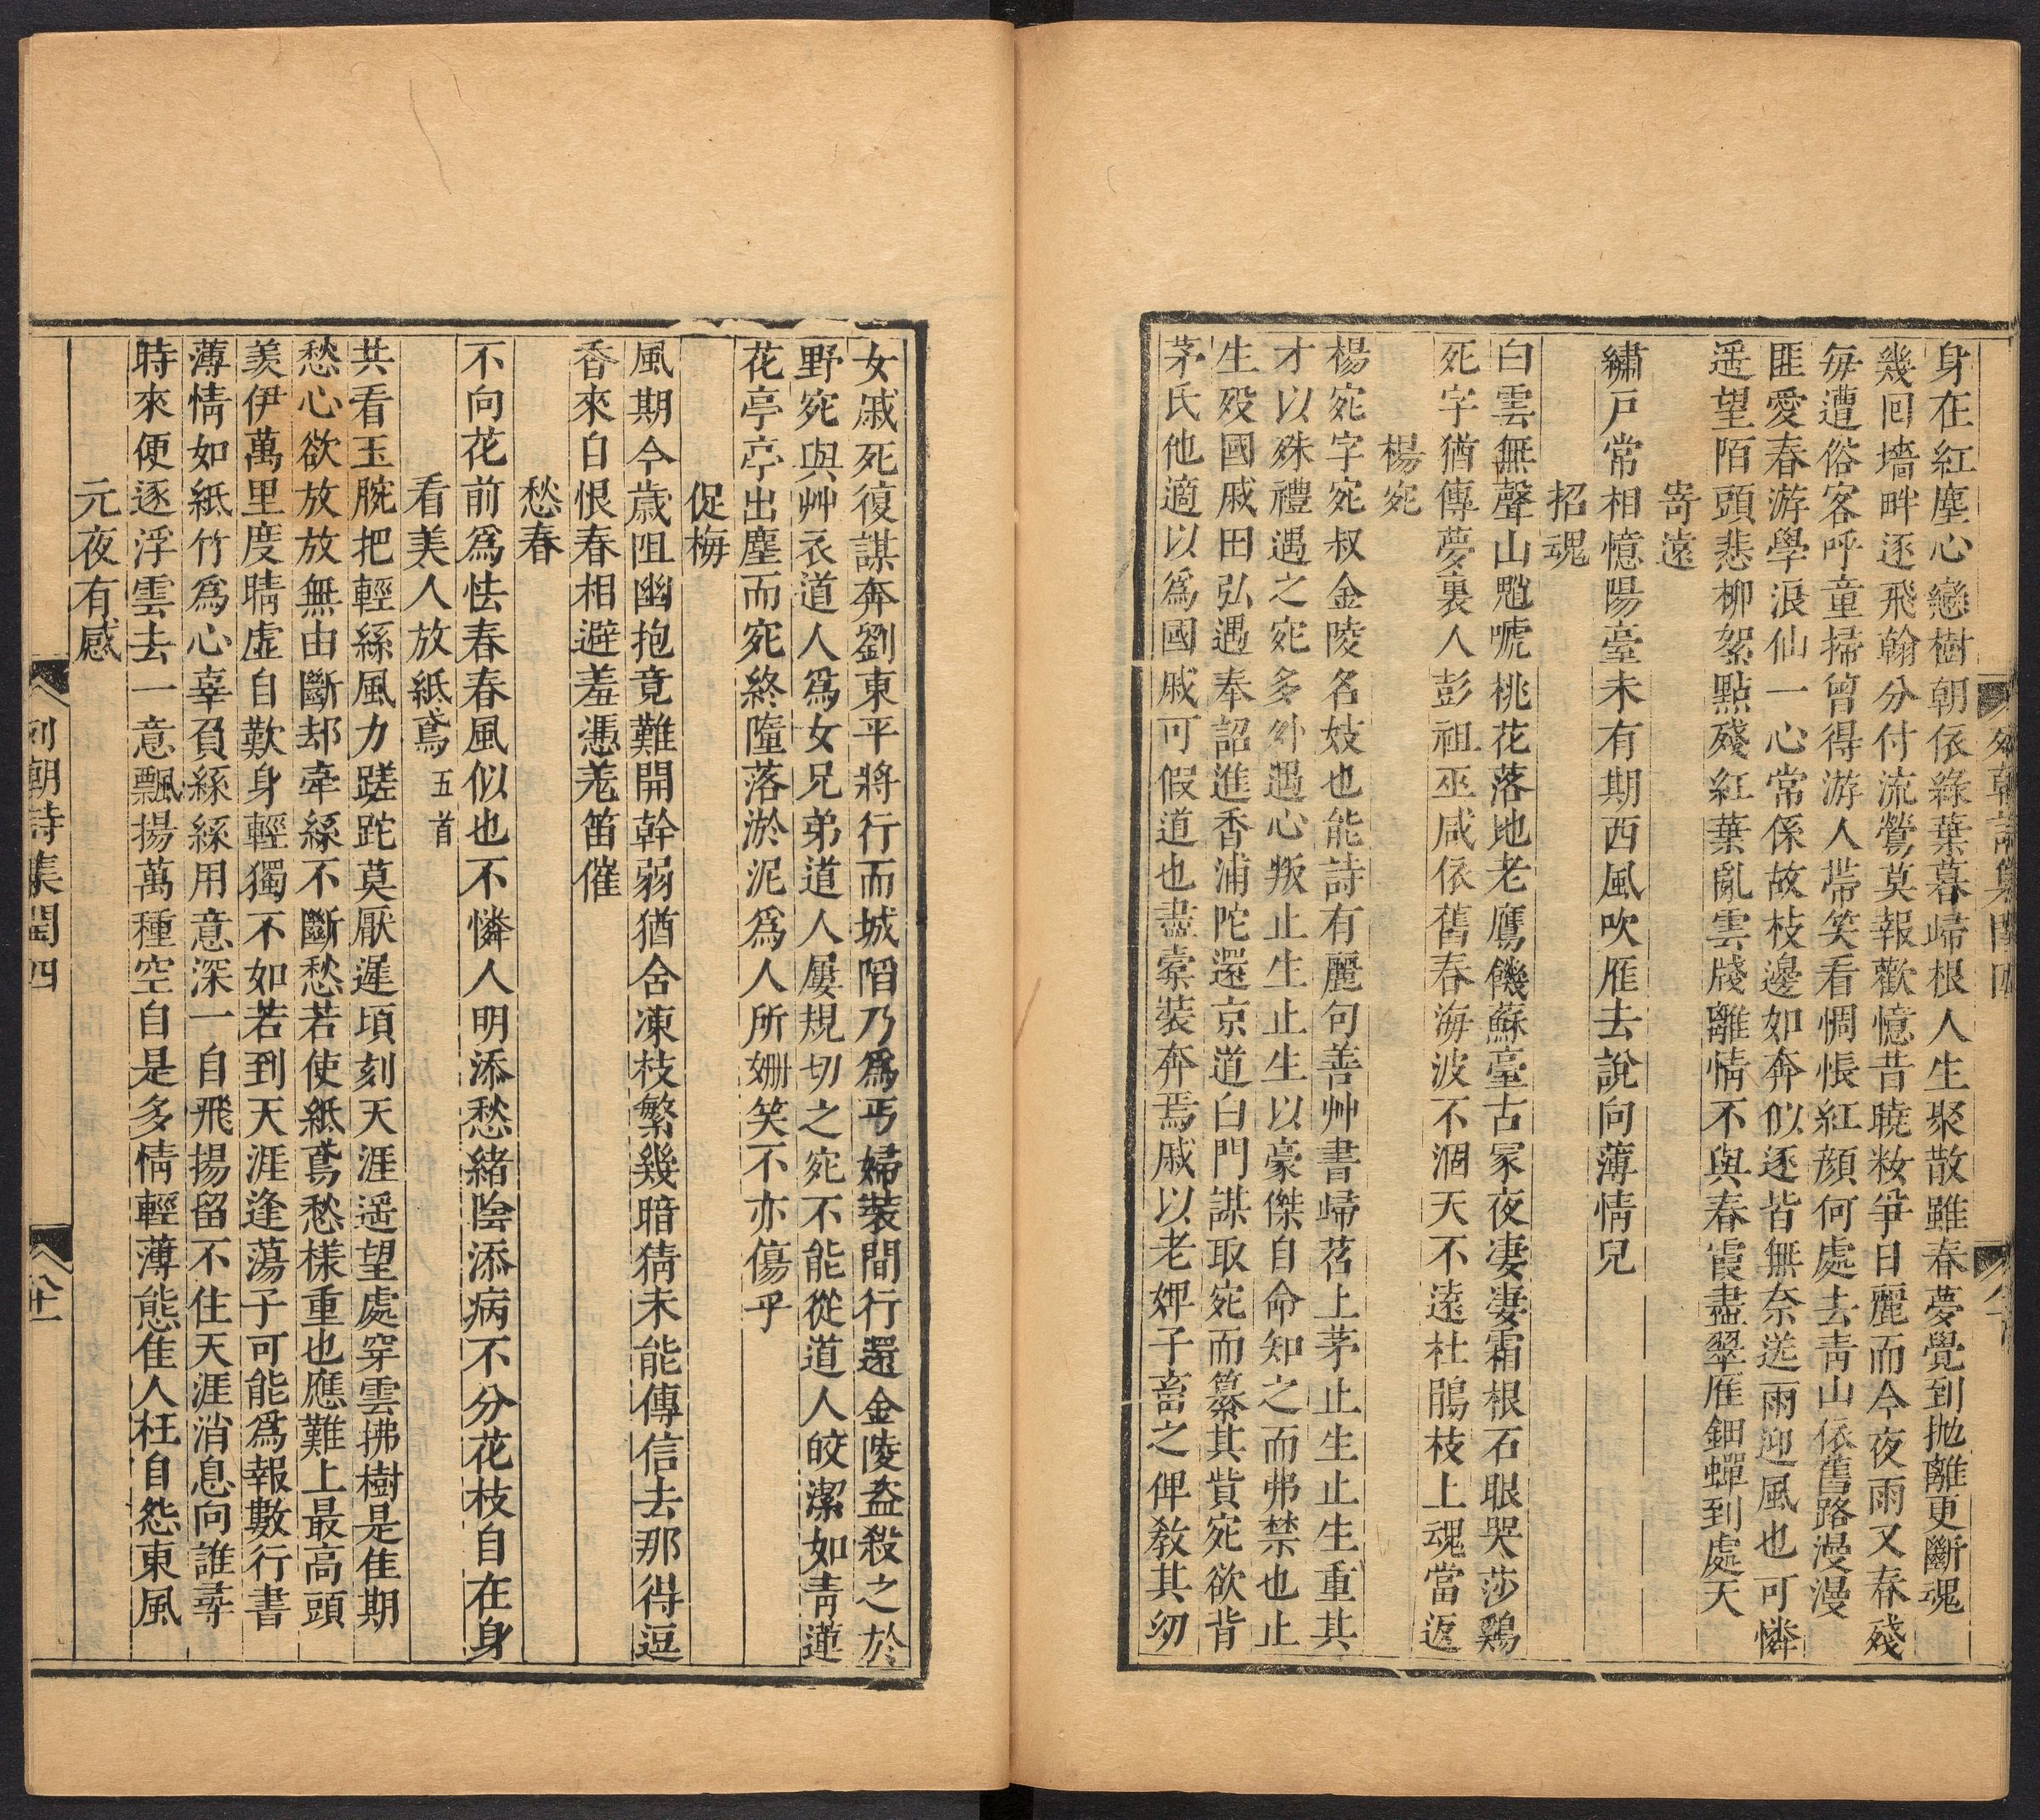 身在紅塵心戀樹朝依綠葉暮歸根人生聚散雖春夢覺到拋離更斷魂
幾回墻畔逐飛翰分付流鶯莫報歡憶昔曉粧爭日麗而今夜雨又春殘
每遭俗客呼童掃曾得游人帶笑看惆悵紅顔何處去靑山依舊路漫漫
匪愛春游學浪仙一心常係故枝邊如奔似逐皆無奈送雨迎風也可憐
遥望陌頭悲柳絮點殘紅葉亂雲牋離情不與春霞盡翠雁鈿蟬到處天
寄遠
繡戸常相憶陽臺未有期西風吹雁去說向薄情兒
招魂
白雲無聲山魈唬桃花落地老鷹饑蘇臺古冢夜凄凄霜根石眼哭莎鷄
死字猶傳夢裏人彭祖巫咸依舊春海波不涸天不遠杜鵑枝上魂當返
楊宛
楊宛字宛叔金陵名妓也能詩有麗句善艸書歸苕上茅止生止生重其
才以殊禮遇之宛多外遇心叛止生止生以豪傑自命知之而弗禁也止
生歿國戚田弘遇奉詔進香浦陀還京道白門謀取宛而纂其貲宛欲背
茅氏他適以爲國戚可假道也盡橐裝奔焉戚以老婢子畜之俾敎其幼
列朝詩集閏四
女戚死復謀奔劉東平將行而城陷乃爲丐婦裝間行還金陵盗殺之於
野宛與艸衣道人爲女兄弟道人屢規切之宛不能從道人皎潔如靑蓮
花亭亭出塵而宛終墮落淤泥爲人所姍笑不亦傷乎
促梅
風期今歲阻幽抱竟難開幹弱猶含凍枝繁幾暗猜未能傳信去那得逗
香來白恨春相避羞憑羌笛催
愁春
不向花前爲怯春春風似也不憐人明添愁緒陰添病不分花枝自在身
看美人放紙鳶 五首
共看玉腕把輕絲風力蹉跎莫厭遲頃刻天涯遥望處穿雲拂樹是佳期
愁心欲放放無由斷却牽絲不斷愁若使紙鳶愁樣重也應難上最高頭
羨伊萬里度晴虛自歎身輕獨不如若到天涯逢蕩子可能爲報數行書
薄情如紙竹爲心辜負絲絲用意深一自飛揚留不住天涯消息向誰尋
時來便逐浮雲去一意飄揚萬種空自是多情輕薄態佳人枉自怨東風
元夜有感
列朝詩集閏四
八十一